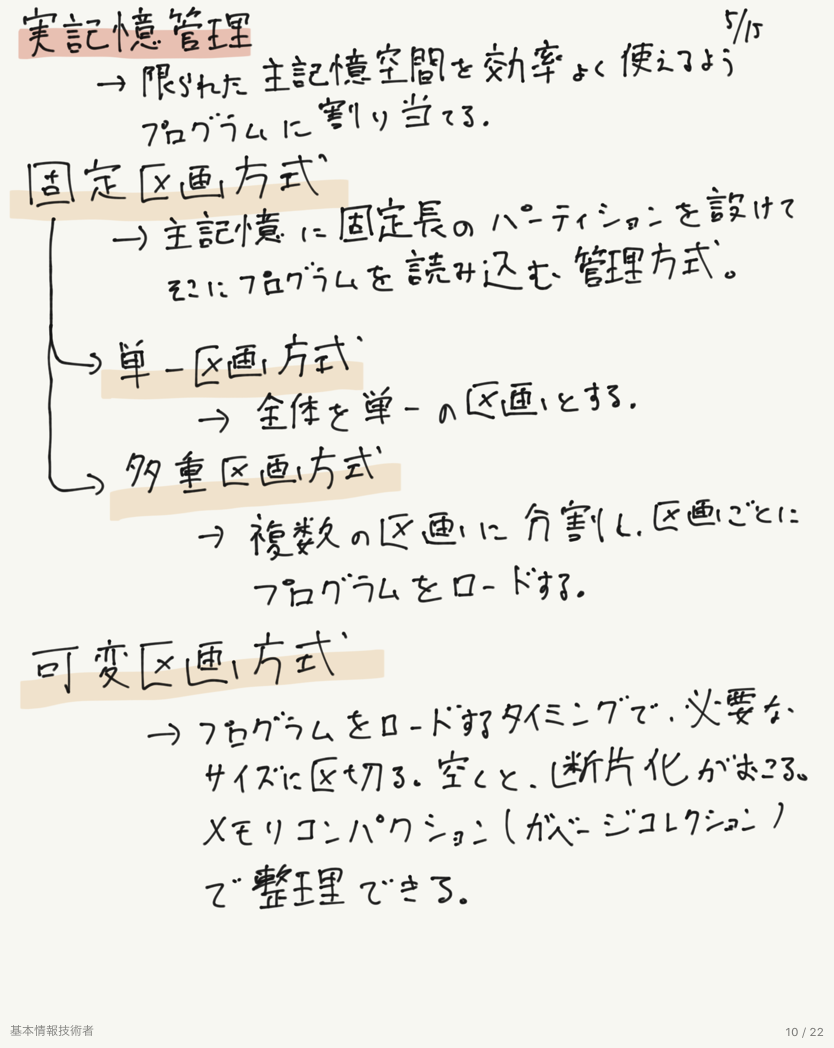 実記憶管理
5/15
→ 限られた 主記憶空間を 効率よく 使えるよう
プログラムに 割り当てる.
固定区画方式
→ 主記憶に 固定長の パーティションを設けて
そこにプログラムを 読み込む 管理方式。
単一区画方式
→ 全体を 単一の 区画とする.
多重区画方式
→ 複数の区画に 分割し、区画ごとに
プログラムをロードする.
可変区画方式
→ プログラムをロードするタイミングで、必要な
サイズに区切る. 空くと、断片化がおこる。
メモリコンパクション(ガベージコレクション)
で整理できる.
基本情報技術者
10 / 22